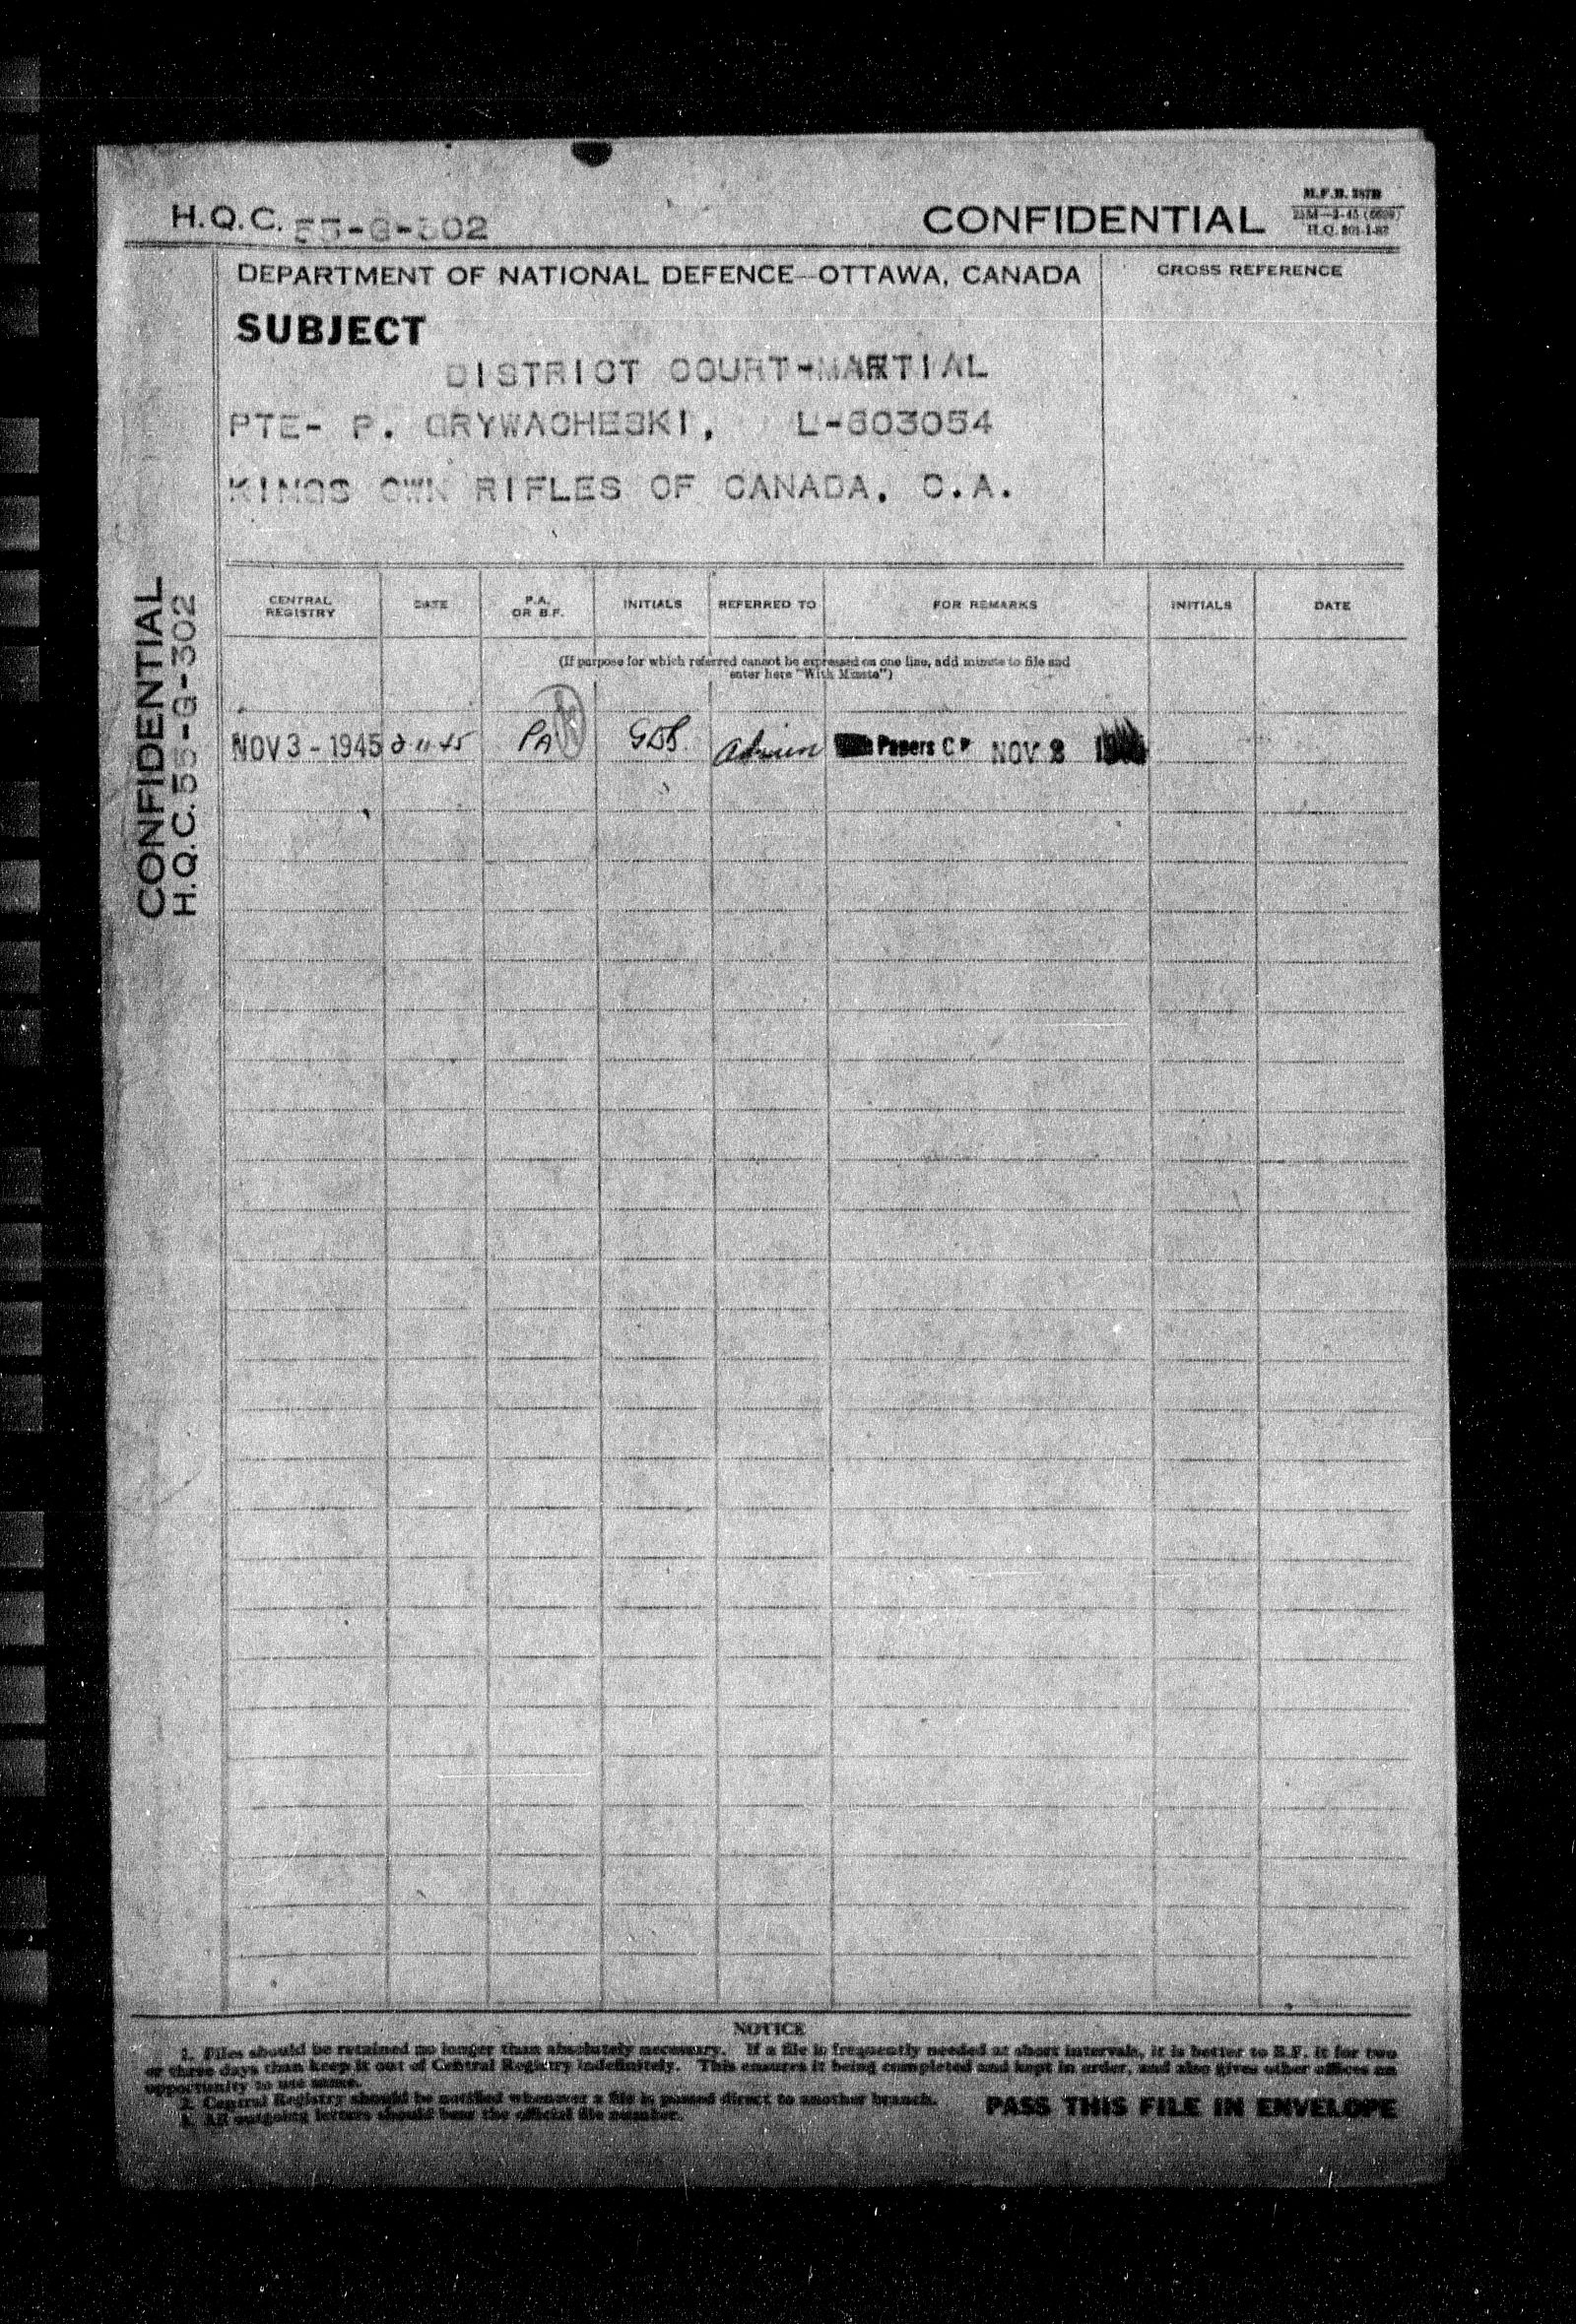 H.Q.C. 55-G-302
CONFIDENTIAL
M.F.B. 387B
H.Q. 801-1-82
DEPARTMENT OF NATIONAL DEFENCE—OTTAWA, CANADA
CROSS REFERENCE
SUBJECT
DISTRICT COURT-MARTIAL
PTE- P. GRYWACHESKI, L-603054
KINGS OWN RIFLES OF CANADA, C.A.
CONFIDENTIAL
H.Q.C. 55-G-302
CENTRAL REGISTRY DATE P.A. OR B.F. INITIALS REFERRED TO FOR REMARKS INITIALS DATE
(If purpose for which referred cannot be expressed on one line, add minute to file and
enter here "With Minute")
NOV 3 - 1945 3 11 45 PA Admin Papers NOV 8
NOTICE
1. Files should be retained no longer than absolutely necessary. If a file is frequently needed at short intervals, it is better to B.F. it for two
or three days than keep it out of Central Registry indefinitely. This ensures it being completed and kept in order, and also gives other offices an
opportunity to use same.
2. Central Registry should be notified whenever a file is passed direct to another branch.
3. All outgoing letters should bear the official file number.
PASS THIS FILE IN ENVELOPE